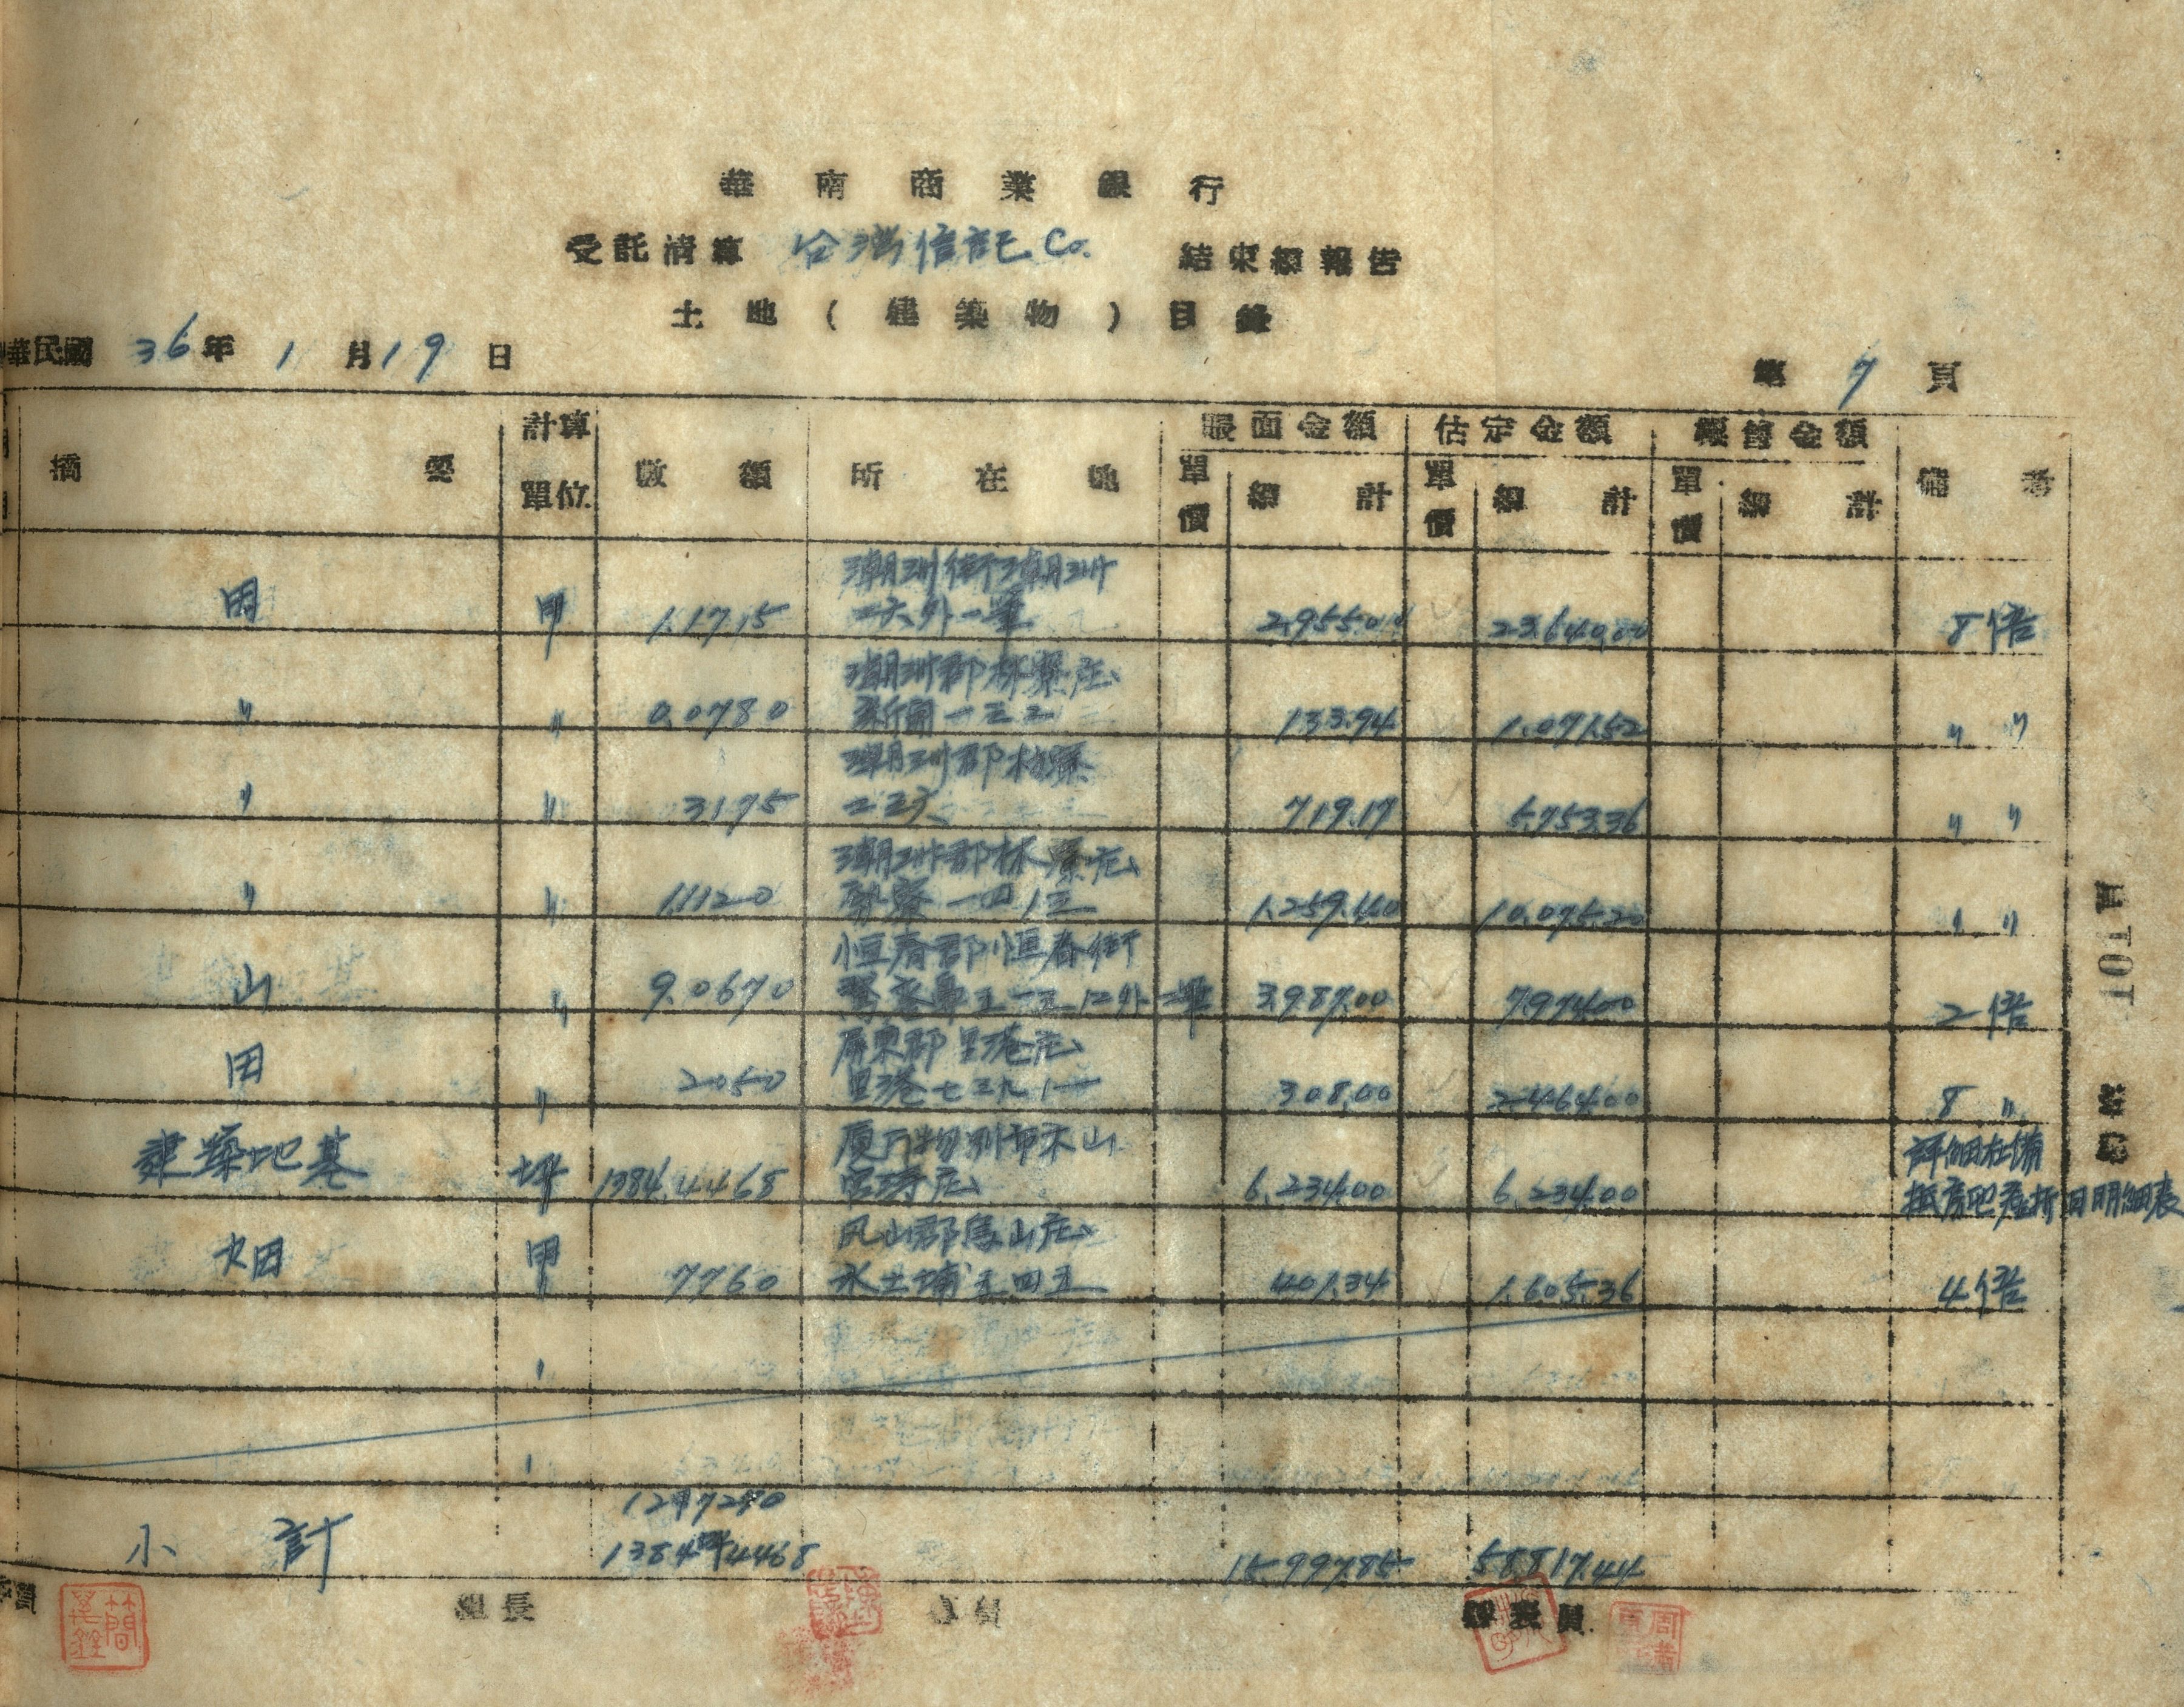 華南商業銀行
受託清算 台湾信託 Co. 結束總報告
土地(建築物)目錄
華民國 36 年 1 月 19 日 第 7 頁
摘要 計算單位 數額 所在地 賬面金額 單價 總計 估定金額 單價 總計 總計 單價 備考
田 甲 1.1715 潮州街潮州
二六外一筆 2,955.00 23,640.00 8倍
〃 〃 0.0780 潮州郡林寮庄
新 一三二 133.94 1,071.52 〃 〃
〃 〃 3175 潮州郡
二三六 719.17 5,753.36 〃 〃
〃 〃 1.1120 潮州郡林 庄
寮一四ノ三 1,259.40 10,075.20 〃 〃
山 〃 9.0670 恒春郡恒春街
鵞鑾鼻五一三ノ二外二筆 3,987.00 7,974.00 2倍
田 〃 2050 屏東郡里港庄
里港七三九ノ一 308.00 2,464.00 8 〃
建築地基 坪 1384.4468 廈門特別市禾山
庄 6,234.00 6,234.00 詳細在備
抵房地產折 目明細表
畑 甲 7760 凤山郡鳥山庄
水土埔五四五 401.34 1,605.36 4倍
小計 12甲7270
1384坪4468 15,997.85 58,817.44
組長 員